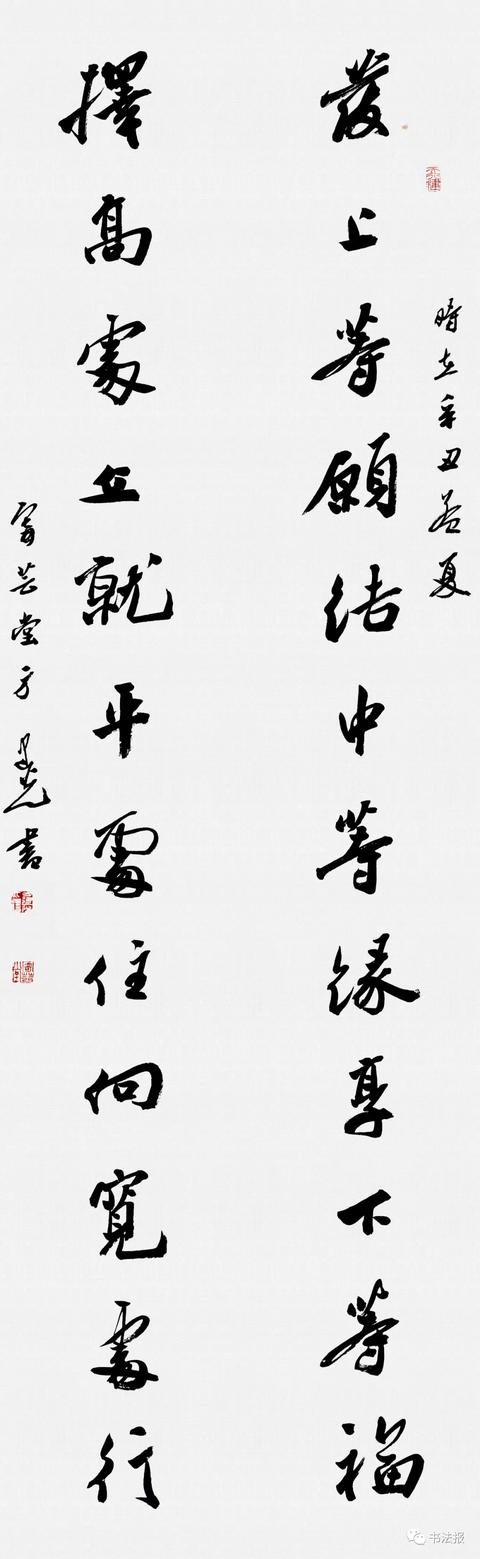 時在辛丑孟夏
發上等願結中等緣享下等福
擇高處立就平處住向寬處行
芸堂方書
书法报